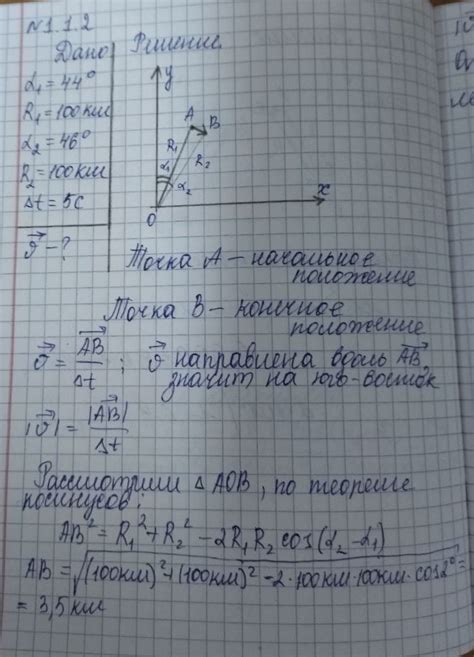 N1.1.2
Дано Решение
α₁ = 44°
R₁ = 100км
α₂ = 46°
R₂ = 100км
Δt = 5с
v⃗ - ?
y
A
B
R₁
R₂
α₁
α₂
O
x
Точка A – начальное
положение
Точка B – конечное
положение
v⃗ = AB⃗/Δt ; v⃗ направлена вдоль AB⃗,
значит на юго-восток
|v⃗| = |AB⃗|/Δt
Рассмотрим △ AOB, по теореме
косинусов:
AB² = R₁² + R₂² – 2R₁R₂ cos(α₂ – α₁)
AB = √((100км)² + (100км)² – 2·100км·100км·cos2°) =
= 3,5км